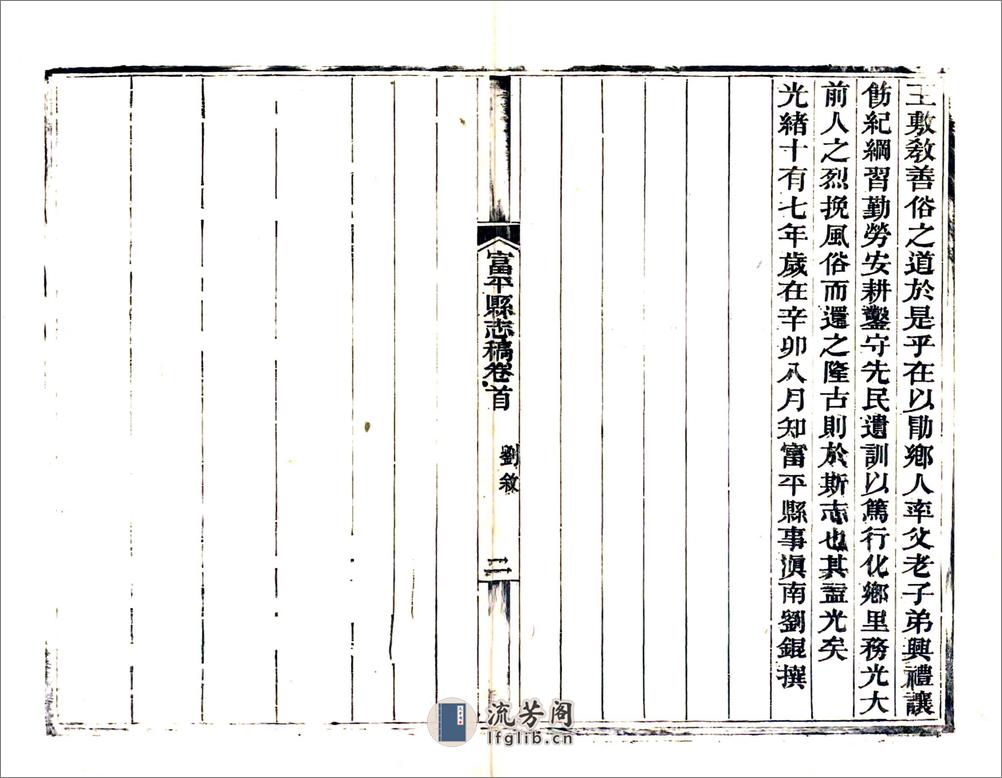 王敷教善俗之道於是乎在以勖鄉人率父老子弟興禮讓
飭紀綱習勤勞安耕鑿守先民遺訓以篤行化鄉里務光大
前人之烈挽風俗而還之隆古則於斯志也其益光矣
光緒十有七年歲在辛卯八月知富平縣事滇南劉錕撰
富平縣志稿卷首
劉敘
二
流芳阁
lfglib.cn